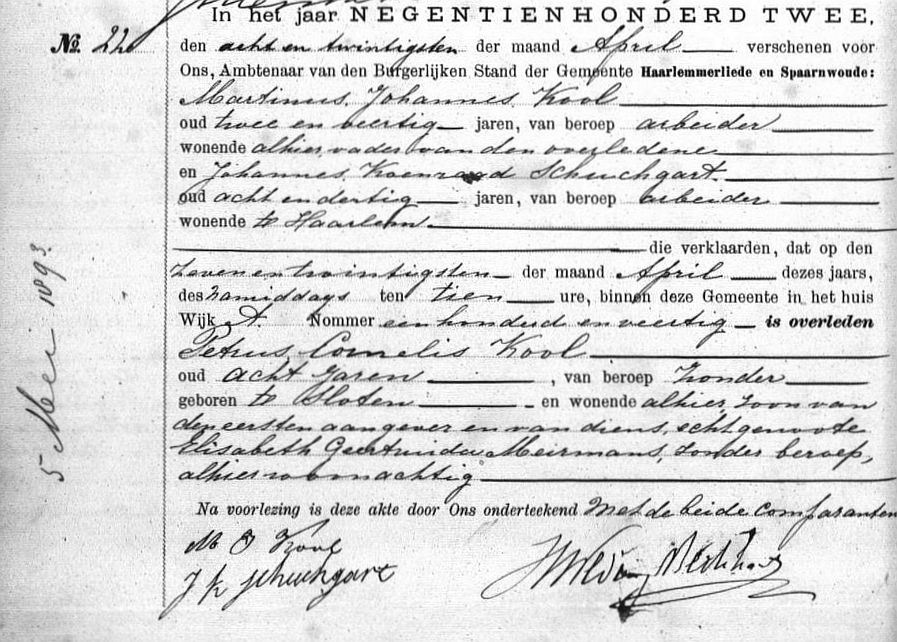 In het jaar NEGENTIENHONDERD TWEE,
No. 22 den acht en twintigsten der maand April verschenen voor
Ons, Ambtenaar van den Burgerlijken Stand der Gemeente Haarlemmerliede en Spaarnwoude:
Martinus Johannes Kool
oud twee en veertig jaren, van beroep arbeider
wonende alhier, vader van den overledene
en Johannes Koenraad Schuchgart
oud acht en dertig jaren, van beroep arbeider
wonende te Haarlem
die verklaarden, dat op den
zeven en twintigsten der maand April dezes jaars,
des namiddags ten tien ure, binnen deze Gemeente in het huis
Wijk A. Nommer een honderd en veertig is overleden
Petrus Cornelis Kool
oud acht jaren, van beroep zonder
geboren te Sloten en wonende alhier, zoon van
den eersten aangever en van diens echtgenoote
Elisabeth Geertruida Meirmans, zonder beroep,
alhier woonachtig
Na voorlezing is deze akte door Ons onderteekend met de beide comparanten
M J Kool
J k Schuchgart
5 Mei 1893.